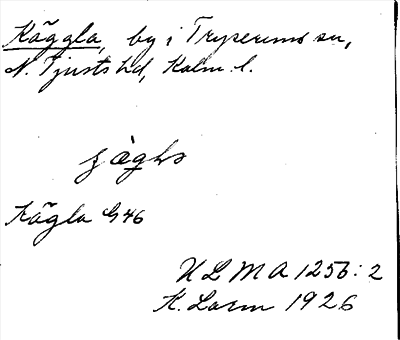 Käggla, by i Tryserums sn,
N. Tjusts hd, Kalm. l.
Kägla G46
ULMA 1256:2
K. Lorm 1926